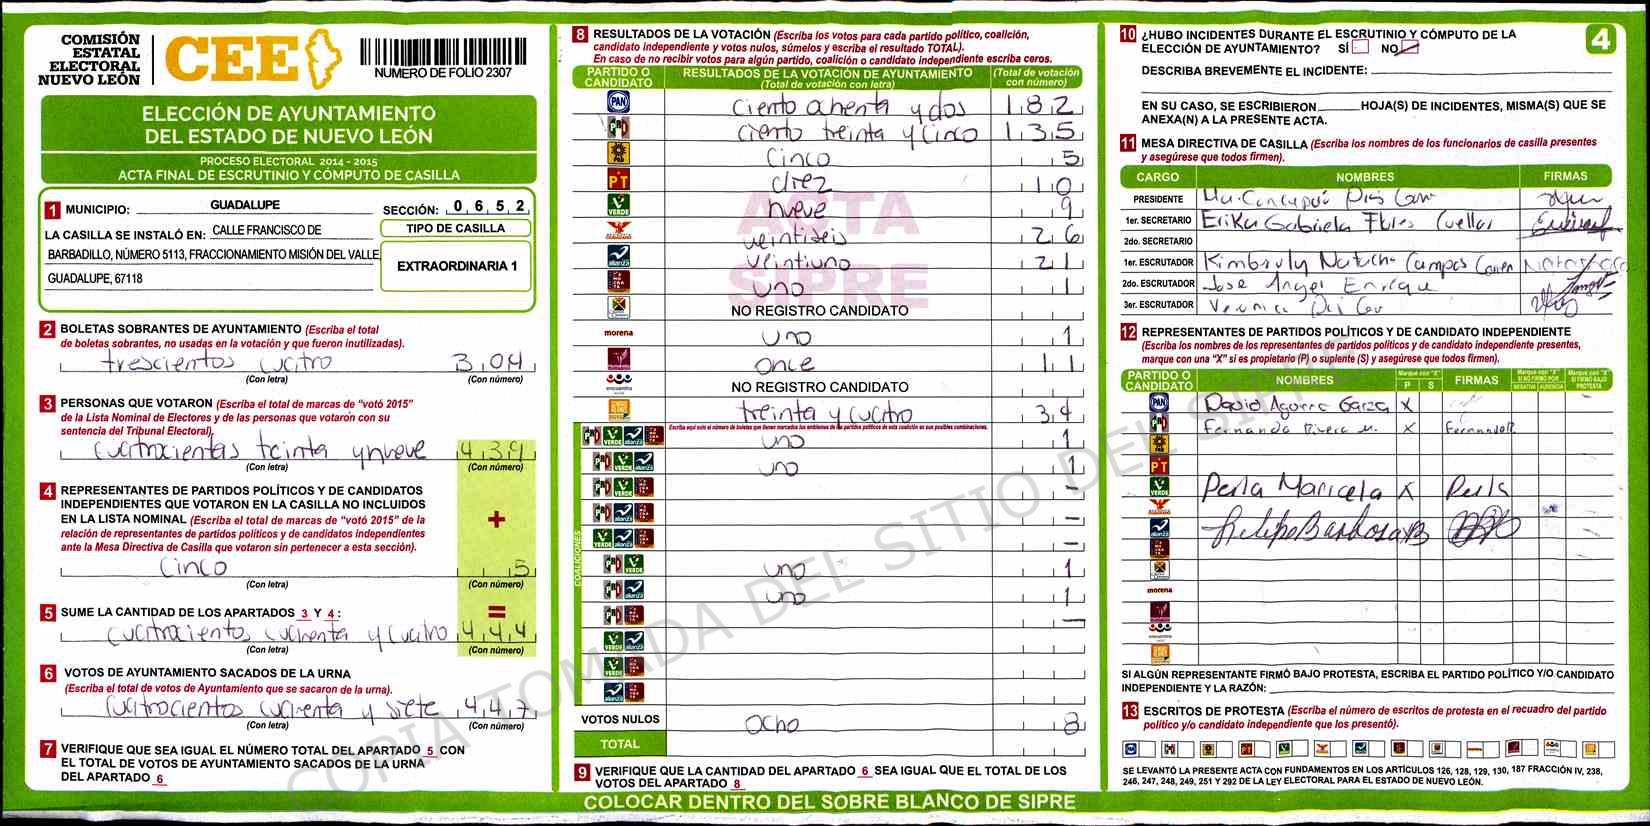 COMISIÓN
ESTATAL
ELECTORAL
NUEVO LEÓN
CEE
NUMERO DE FOLIO 2307
ELECCIÓN DE AYUNTAMIENTO
DEL ESTADO DE NUEVO LEÓN
PROCESO ELECTORAL 2014 - 2015
ACTA FINAL DE ESCRUTINIO Y CÓMPUTO DE CASILLA
1 MUNICIPIO: GUADALUPE SECCIÓN: 0 6 5 2
LA CASILLA SE INSTALÓ EN: CALLE FRANCISCO DE
BARBADILLO, NÚMERO 5113, FRACCIONAMIENTO MISIÓN DEL VALLE,
GUADALUPE, 67118
TIPO DE CASILLA
EXTRAORDINARIA 1
2 BOLETAS SOBRANTES DE AYUNTAMIENTO (Escriba el total
de boletas sobrantes, no usadas en la votación y que fueron inutilizadas).
trescientos cuatro 304
(Con letra) (Con número)
3 PERSONAS QUE VOTARON (Escriba el total de marcas de “votó 2015”
de la Lista Nominal de Electores y de las personas que votaron con su
sentencia del Tribunal Electoral).
cuatrocientas treinta y nueve 439
(Con letra) (Con número)
4 REPRESENTANTES DE PARTIDOS POLÍTICOS Y DE CANDIDATOS
INDEPENDIENTES QUE VOTARON EN LA CASILLA NO INCLUIDOS
EN LA LISTA NOMINAL (Escriba el total de marcas de “votó 2015” de la
relación de representantes de partidos políticos y de candidatos independientes
ante la Mesa Directiva de Casilla que votaron sin pertenecer a esta sección).
+
cinco 5
(Con letra) (Con número)
5 SUME LA CANTIDAD DE LOS APARTADOS 3 Y 4 : =
cuatrocientos cuarenta y cuatro 444
(Con letra) (Con número)
6 VOTOS DE AYUNTAMIENTO SACADOS DE LA URNA
(Escriba el total de votos de Ayuntamiento que se sacaron de la urna).
cuatrocientos cuarenta y siete 447
(Con letra) (Con número)
7 VERIFIQUE QUE SEA IGUAL EL NÚMERO TOTAL DEL APARTADO 5 CON
EL TOTAL DE VOTOS DE AYUNTAMIENTO SACADOS DE LA URNA
DEL APARTADO 6
8 RESULTADOS DE LA VOTACIÓN (Escriba los votos para cada partido político, coalición,
candidato independiente y votos nulos, súmelos y escriba el resultado TOTAL).
En caso de no recibir votos para algún partido, coalición o candidato independiente escriba ceros.
PARTIDO O CANDIDATO RESULTADOS DE LA VOTACIÓN DE AYUNTAMIENTO (Total de votación con letra) (Total de votación con número)
PAN ciento ochenta y dos 182
PRI ciento treinta y cinco 135
PRD cinco 5
PT diez 10
VERDE nueve 9
veintiseis 26
alianza veintiuno 21
uno 1
NO REGISTRO CANDIDATO
morena uno 1
once 11
encuentro NO REGISTRO CANDIDATO
treinta y cuatro 34
Escriba aquí solo el número de boletas que tienen marcados los emblemas de los partidos políticos de esta coalición en sus posibles combinaciones.
COALICIONES
uno 1
uno 1
-
-
-
uno 1
uno 1
-
VOTOS NULOS ocho 8
TOTAL
9 VERIFIQUE QUE LA CANTIDAD DEL APARTADO 6 SEA IGUAL QUE EL TOTAL DE LOS
VOTOS DEL APARTADO 8
COLOCAR DENTRO DEL SOBRE BLANCO DE SIPRE
ACTA
SIPRE
COPIA TOMADA DEL SITIO DEL SIPRE
4
10 ¿HUBO INCIDENTES DURANTE EL ESCRUTINIO Y CÓMPUTO DE LA
ELECCIÓN DE AYUNTAMIENTO? SÍ NO
DESCRIBA BREVEMENTE EL INCIDENTE:
EN SU CASO, SE ESCRIBIERON HOJA(S) DE INCIDENTES, MISMA(S) QUE SE
ANEXA(N) A LA PRESENTE ACTA.
11 MESA DIRECTIVA DE CASILLA (Escriba los nombres de los funcionarios de casilla presentes
y asegúrese que todos firmen).
CARGO NOMBRES FIRMAS
PRESIDENTE
1er. SECRETARIO Erika Gabriela Flores Cuellar
2do. SECRETARIO
1er. ESCRUTADOR Kimberly Natacha Campos
2do. ESCRUTADOR Jose Angel Enrique
3er. ESCRUTADOR
12 REPRESENTANTES DE PARTIDOS POLÍTICOS Y DE CANDIDATO INDEPENDIENTE
(Escriba los nombres de los representantes de partidos políticos y de candidato independiente presentes,
marque con una “X” si es propietario (P) o suplente (S) y asegúrese que todos firmen).
PARTIDO O CANDIDATO NOMBRES Marque con "X" P S FIRMAS Marque con "X" SI NO FIRMÓ POR NEGATIVA AUSENCIA Marque con "X" SI FIRMÓ BAJO PROTESTA
PAN David Aguirre Garza X
PRI Fernanda Rivera M. X Fernanda R
PRD
PT
VERDE Perla Maricela X Perla
alianza Felipe Barbosa B
morena
encuentro
SI ALGÚN REPRESENTANTE FIRMÓ BAJO PROTESTA, ESCRIBA EL PARTIDO POLÍTICO Y/O CANDIDATO
INDEPENDIENTE Y LA RAZÓN:
13 ESCRITOS DE PROTESTA (Escriba el número de escritos de protesta en el recuadro del partido
político y/o candidato independiente que los presentó).
SE LEVANTÓ LA PRESENTE ACTA CON FUNDAMENTOS EN LOS ARTÍCULOS 126, 128, 129, 130, 187 FRACCIÓN IV, 238,
246, 247, 248, 249, 251 Y 292 DE LA LEY ELECTORAL PARA EL ESTADO DE NUEVO LEÓN.